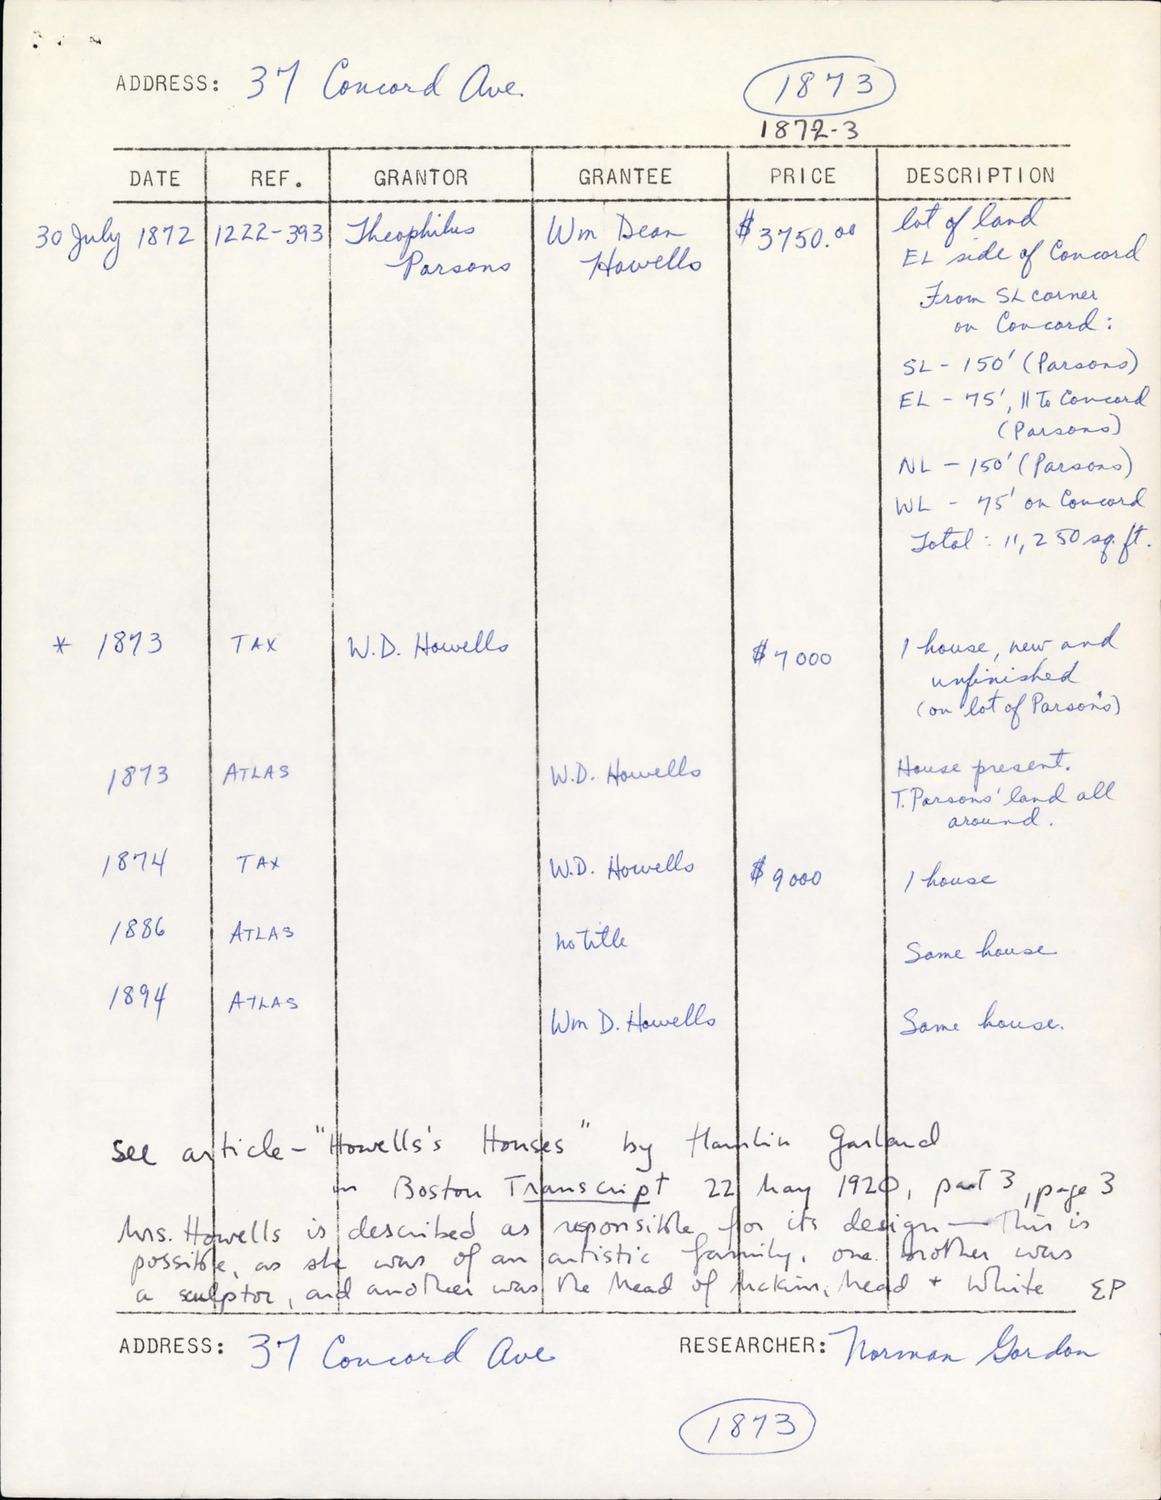 ADDRESS: 37 Concord Ave.
1873
1872-3
DATE REF. GRANTOR GRANTEE PRICE DESCRIPTION
30 July 1872 1222-393 Theophilus Parsons Wm Dean Howells $3750.00 lot of land
EL side of Concord
From SL corner
on Concord:
SL - 150' (Parsons)
EL - 75', 11 To Concord
(Parsons)
NL - 150' (Parsons)
WL - 75' on Concord
Total: 11,250 sq. ft.
* 1873 TAX W.D. Howells $7000 1 house, new and
unfinished
(on lot of Parson's)
1873 ATLAS W.D. Howells House present.
T. Parsons' land all
around.
1874 TAX W.D. Howells $9000 1 house
1886 ATLAS no title Same house
1894 ATLAS Wm D. Howells Same house.
See article - "Howells's Houses" by Hamlin Garland
in Boston Transcript 22 May 1920, part 3, page 3
Mrs. Howells is described as responsible for its design — This is
possible, as she was of an artistic family, one brother was
a sculptor, and another was the Mead of McKim, Mead + White EP
ADDRESS: 37 Concord Ave RESEARCHER: Norman Gordon
1873